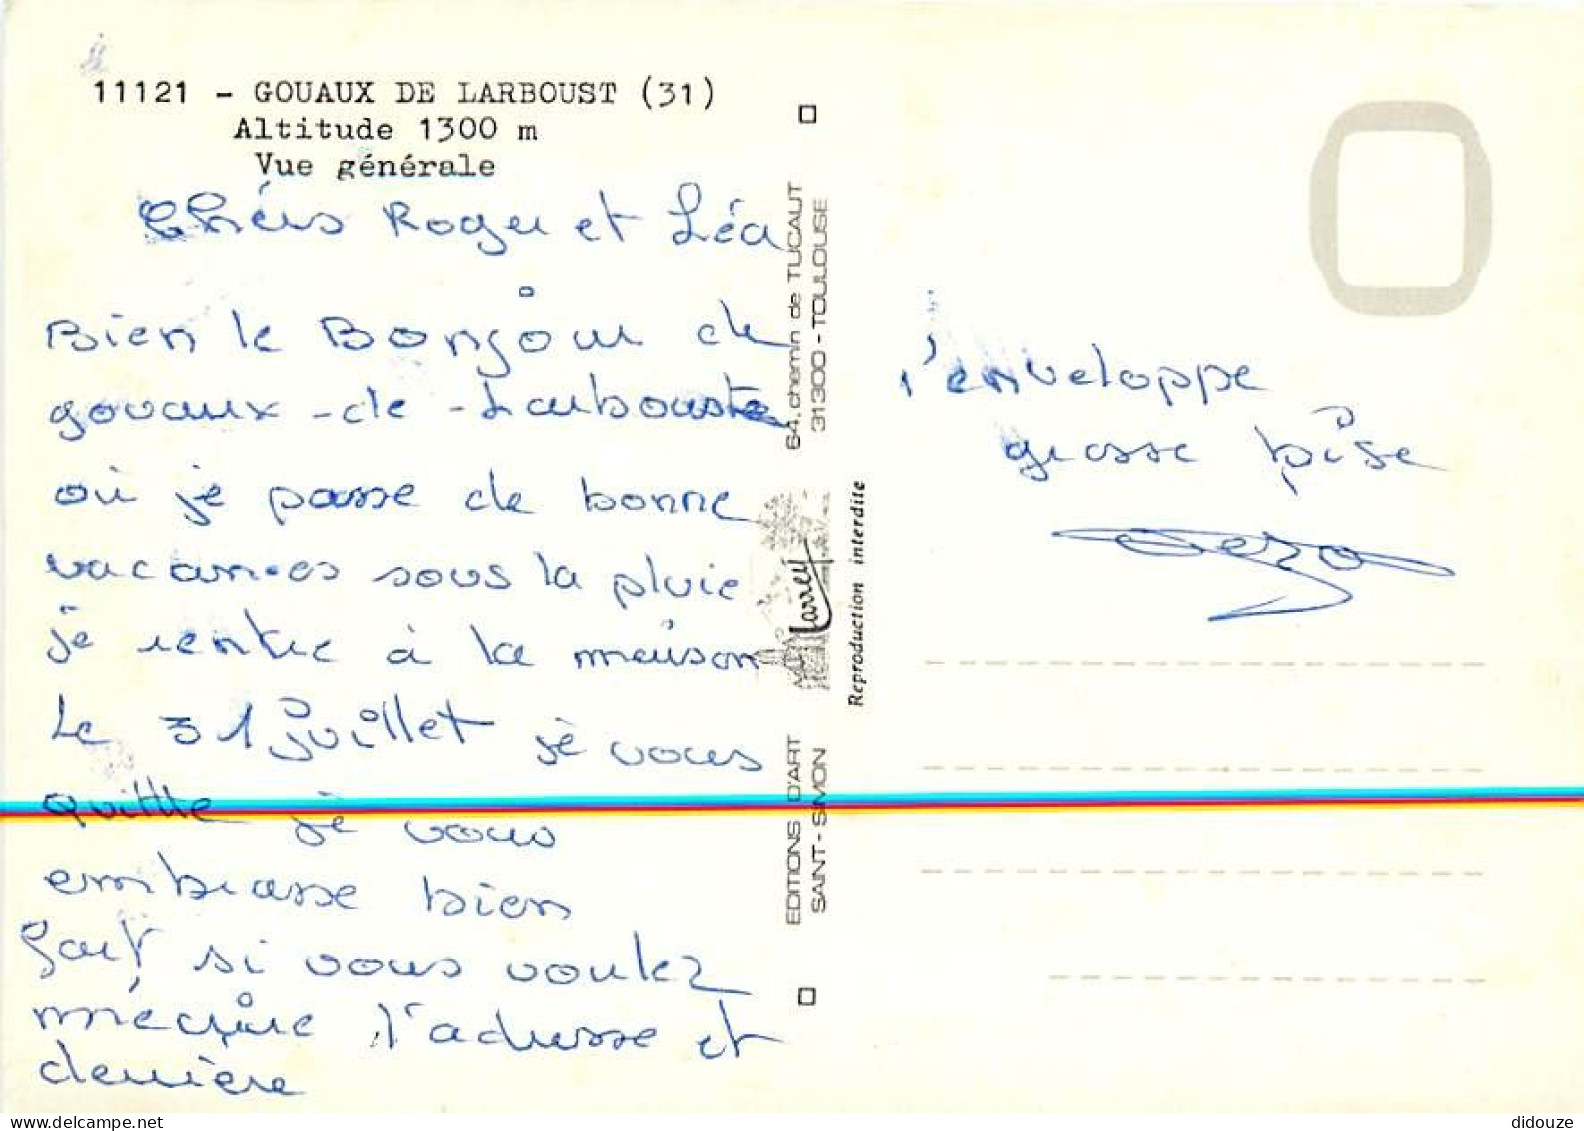 11121 - GOUAUX DE LARBOUST (31)
Altitude 1300 m
Vue générale
Chérs Roger et Léa
Bien le Bonjour de
gouaux-de-Larbouste
où je passe de bonne
vacances sous la pluie
je rentre à la maison
le 31 juillet je vous
quitte je vous
embrasse bien
fort si vous voulez
mécrire l'adresse et
derrière
l'enveloppe
grosse bise
64, chemin de TUCAUT
31300 - TOULOUSE
Larrey
Reproduction interdite
EDITIONS D'ART
SAINT-SIMON
didouze